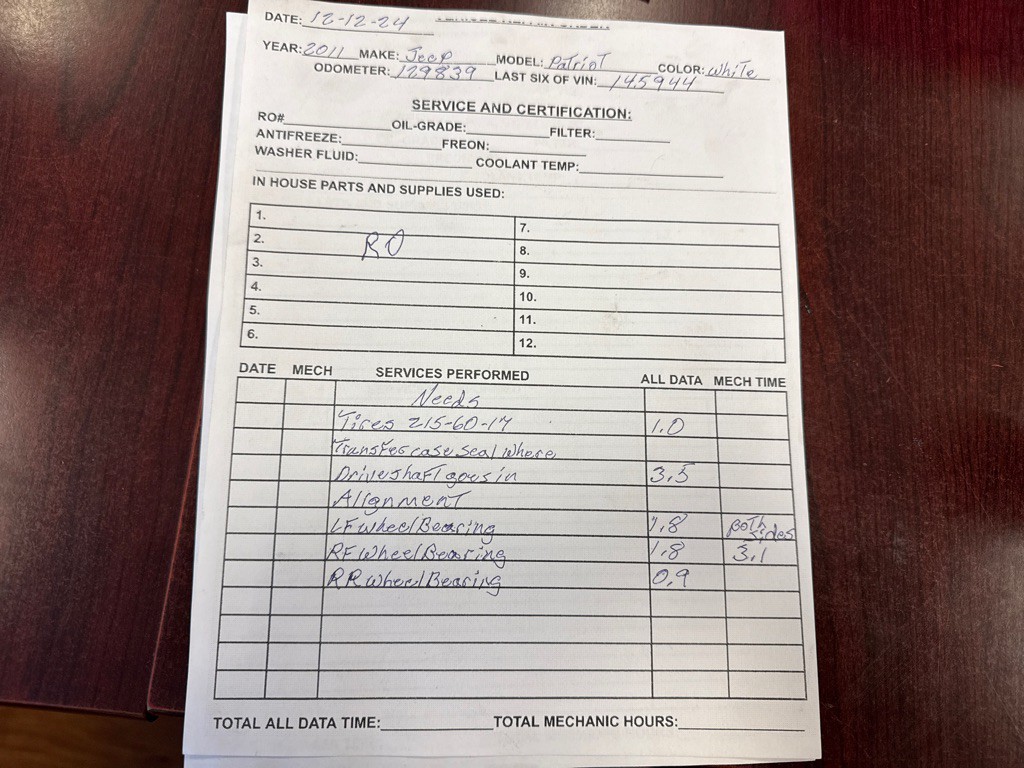 DATE: 12-12-24
YEAR: 2011 MAKE: Jeep MODEL: Patriot COLOR: White
ODOMETER: 129839 LAST SIX OF VIN: 145944
SERVICE AND CERTIFICATION:
RO# OIL-GRADE: FILTER:
ANTIFREEZE: FREON:
WASHER FLUID: COOLANT TEMP:
IN HOUSE PARTS AND SUPPLIES USED:
1. 7.
2. RO 8.
3. 9.
4. 10.
5. 11.
6. 12.
DATE MECH SERVICES PERFORMED ALL DATA MECH TIME
Needs
Tires 215-60-17 1.0
Transfer case seal where
Driveshaft goes in 3.5
Alignment
LF wheel Bearing 1.8 Both sides
RF wheel Bearing 1.8 3.1
RR wheel Bearing 0.9
TOTAL ALL DATA TIME: TOTAL MECHANIC HOURS: